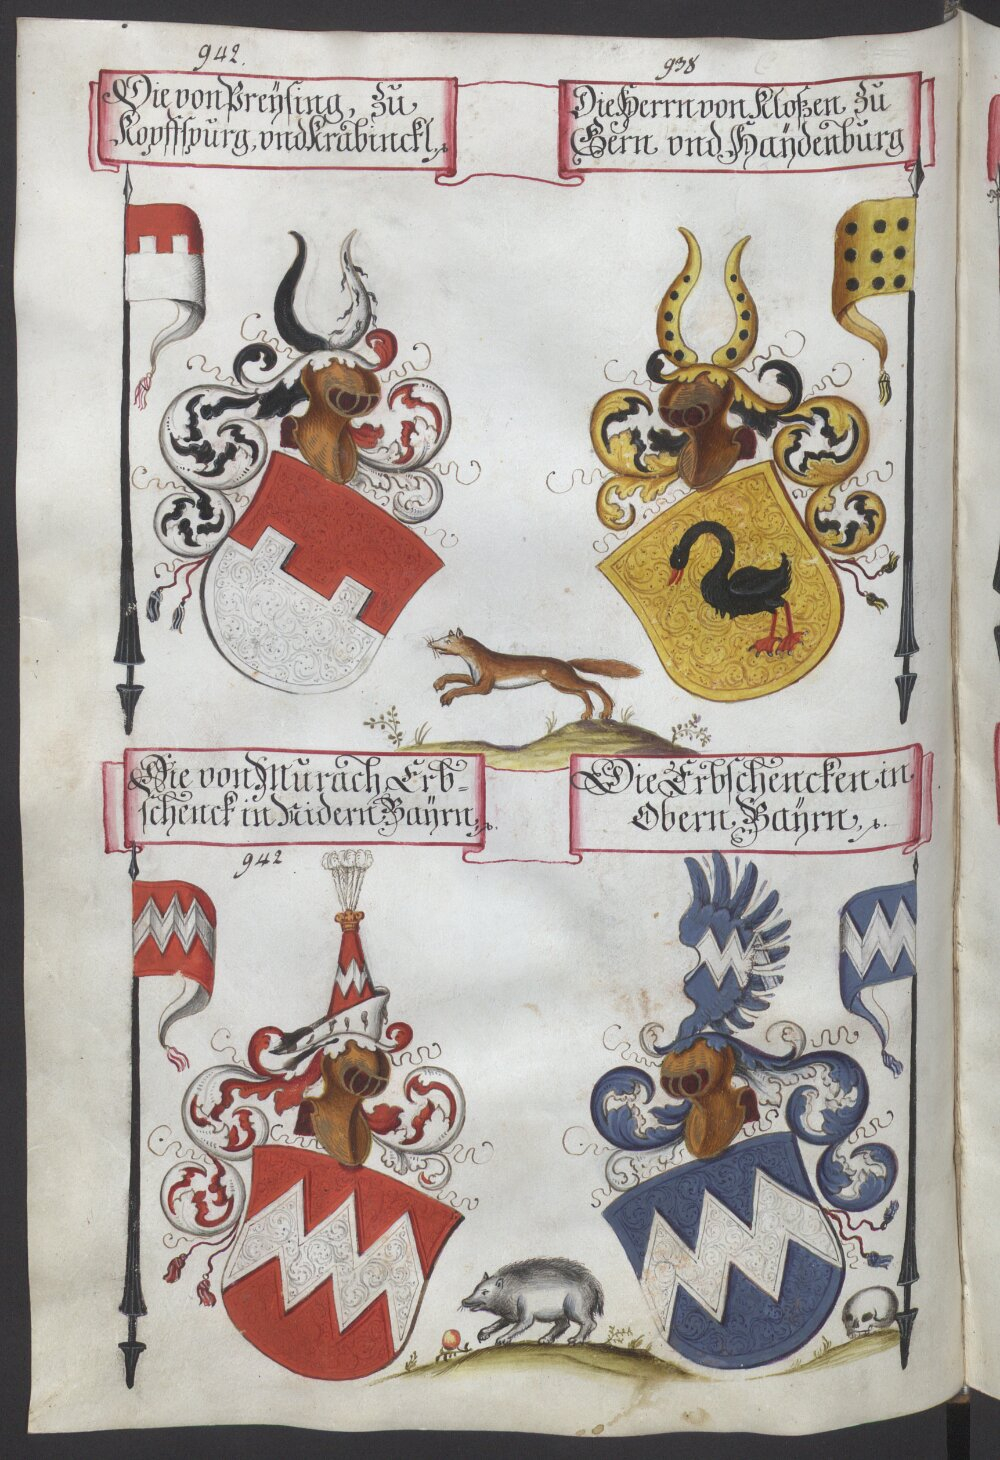 942.
Die von Preÿsing, zu
Kopffspurg, vnd Krabinckl,
938
Die Herrn von Kloßen zu
Gern vnd Haÿdenburg
Die von Murach Erb-
schenck in Nidern Baÿrn,
942
Die Erbschencken in
Obern Baÿrn,